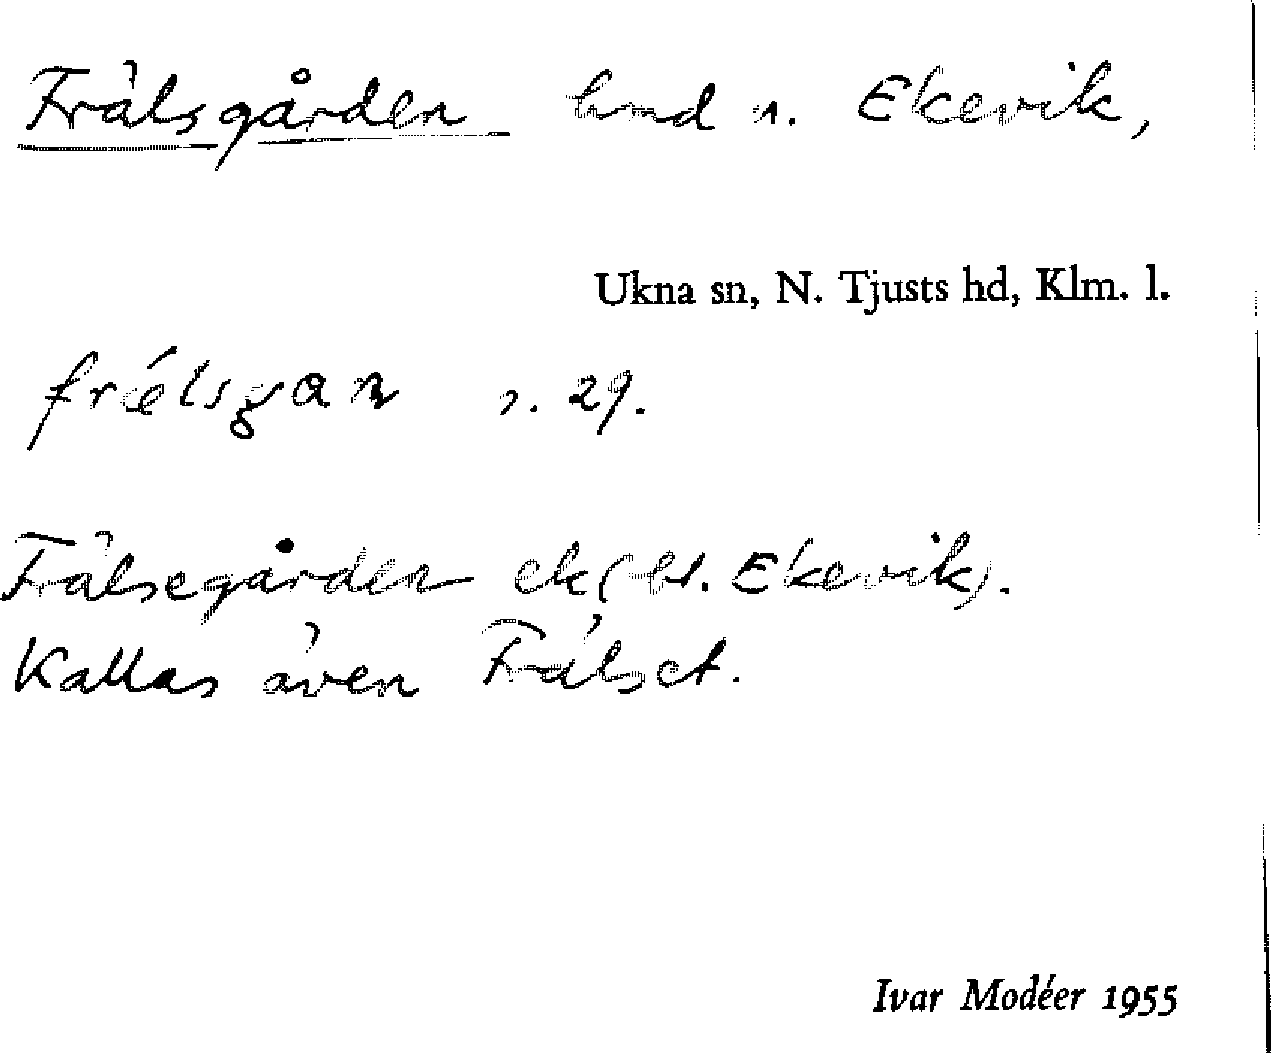 Frälsgården hmd u. Ekevik,
Ukna sn, N. Tjusts hd, Klm. l.
frǽlsgan s. 29.
Frälsegården ek (bl. Ekevik).
Kallas även Frälset.
Ivar Modéer 1955